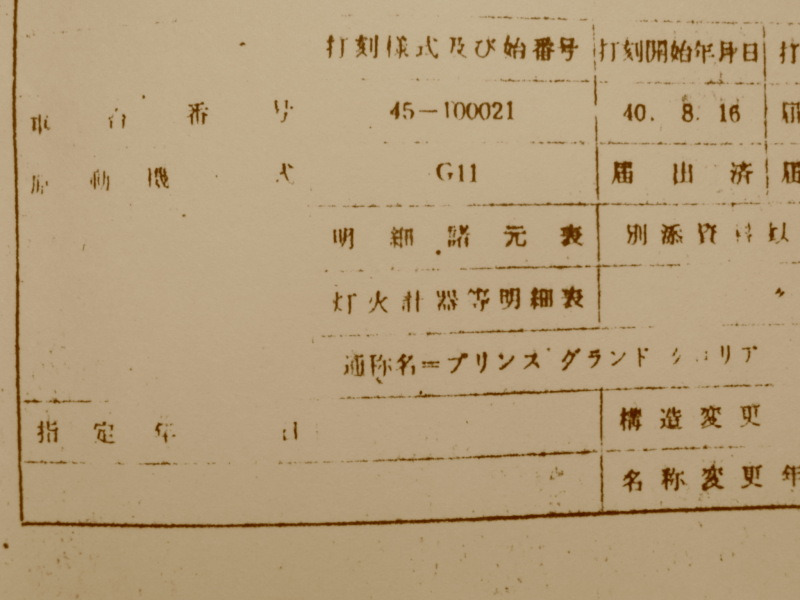 打刻様式及び始番号 打刻開始年月日 打
車台番号 45-100021 40. 8. 16 届
原動機 式 G11 届出済 届
明細諸元表 別添資料以
灯火計器等明細表 〃
通称名=プリンス グランド グロリア
指定年 日 構造変更
名称変更年